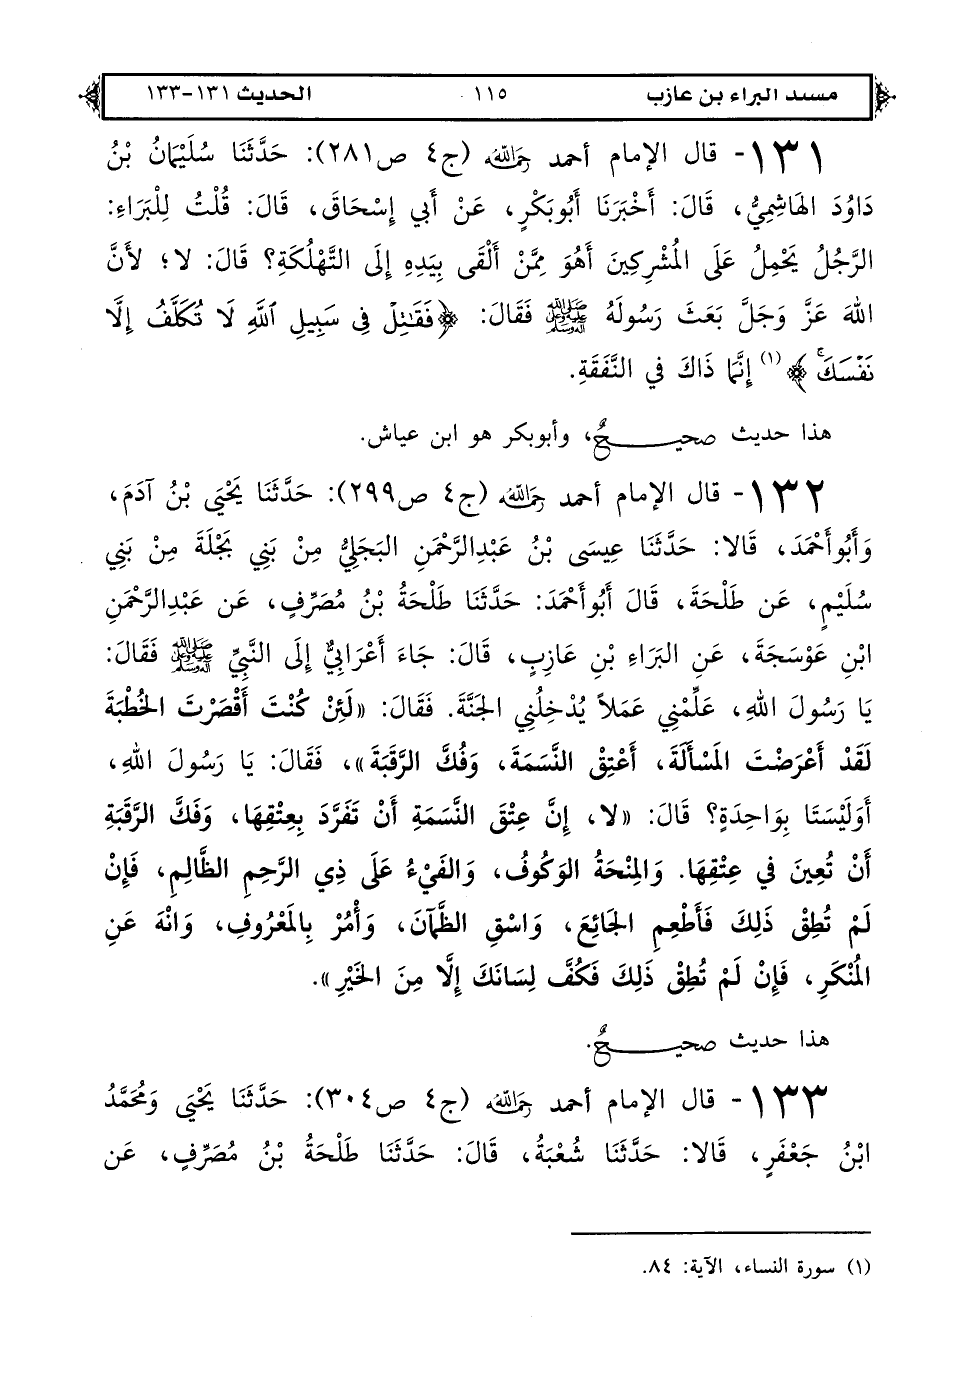 مسند البراء بن عازب ١١٥ الحديث ١٣١-١٣٣
١٣١- قال الإمام أحمد رحمه الله (ج٤ ص٢٨١): حَدَّثَنَا سُلَيْمَانُ بْنُ
دَاوُدَ الهَاشِمِيُّ، قَالَ: أَخْبَرَنَا أَبُوبَكْرٍ، عَنْ أَبِي إِسْحَاقَ، قَالَ: قُلْتُ لِلْبَرَاءِ:
الرَّجُلُ يَحْمِلُ عَلَى المُشْرِكِينَ أَهُوَ مِمَّنْ أَلْقَى بِيَدِهِ إِلَى التَّهْلُكَةِ؟ قَالَ: لا؛ لأَنَّ
اللهَ عَزَّ وَجَلَّ بَعَثَ رَسُولَهُ ﷺ فَقَالَ: ﴿فَقَٰتِلْ فِى سَبِيلِ ٱللَّهِ لَا تُكَلَّفُ إِلَّا
نَفْسَكَ ۚ﴾(١) إِنَّمَا ذَاكَ فِي النَّفَقَةِ.
هذا حديث صحيـــــحٌ، وأبوبكر هو ابن عياش.
١٣٢- قال الإمام أحمد رحمه الله (ج٤ ص٢٩٩): حَدَّثَنَا يَحْيَى بْنُ آدَمَ،
وَأَبُوأَحْمَدَ، قَالا: حَدَّثَنَا عِيسَى بْنُ عَبْدِالرَّحْمَنِ البَجَلِيُّ مِنْ بَنِي بَجْلَةَ مِنْ بَنِي
سُلَيْمٍ، عَن طَلْحَةَ، قَالَ أَبُوأَحْمَدَ: حَدَّثَنَا طَلْحَةُ بْنُ مُصَرِّفٍ، عَن عَبْدِالرَّحْمَنِ
ابْنِ عَوْسَجَةَ، عَنِ البَرَاءِ بْنِ عَازِبٍ، قَالَ: جَاءَ أَعْرَابِيٌّ إِلَى النَّبِيِّ ﷺ فَقَالَ:
يَا رَسُولَ اللهِ، عَلِّمْنِي عَمَلاً يُدْخِلُنِي الجَنَّةَ. فَقَالَ: «لَئِنْ كُنْتَ أَقْصَرْتَ الخُطْبَةَ
لَقَدْ أَعْرَضْتَ المَسْأَلَةَ، أَعْتِقِ النَّسَمَةَ، وَفُكَّ الرَّقَبَةَ»، فَقَالَ: يَا رَسُولَ اللهِ،
أَوَلَيْسَتَا بِوَاحِدَةٍ؟ قَالَ: «لا، إِنَّ عِتْقَ النَّسَمَةِ أَنْ تَفَرَّدَ بِعِتْقِهَا، وَفَكَّ الرَّقَبَةِ
أَنْ تُعِينَ فِي عِتْقِهَا. وَالمِنْحَةُ الوَكُوفُ، وَالفَيْءُ عَلَى ذِي الرَّحِمِ الظَّالِمِ، فَإِنْ
لَمْ تُطِقْ ذَلِكَ فَأَطْعِمِ الجَائِعَ، وَاسْقِ الظَّمْآنَ، وَأْمُرْ بِالمَعْرُوفِ، وَانْهَ عَنِ
المُنْكَرِ، فَإِنْ لَمْ تُطِقْ ذَلِكَ فَكُفَّ لِسَانَكَ إِلَّا مِنَ الخَيْرِ».
هذا حديث صحيـــــحٌ.
١٣٣- قال الإمام أحمد رحمه الله (ج٤ ص٣٠٤): حَدَّثَنَا يَحْيَى وَمُحَمَّدُ
ابْنُ جَعْفَرٍ، قَالا: حَدَّثَنَا شُعْبَةُ، قَالَ: حَدَّثَنَا طَلْحَةُ بْنُ مُصَرِّفٍ، عَن
(١) سورة النساء، الآية: ٨٤.